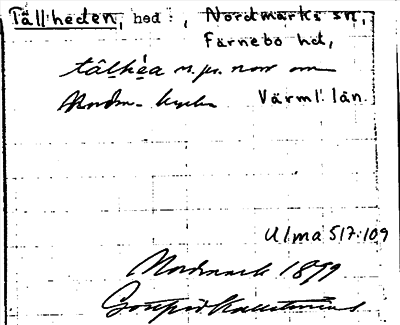 Tällheden, hed, Nordmarks sn,
Färnebo hd,
tä̀lhéa n. pr. norr om
Nordm. kyrka Värml. län.
Ulma 517:109
Nordmark 1899
Gottfrid Kallstenius